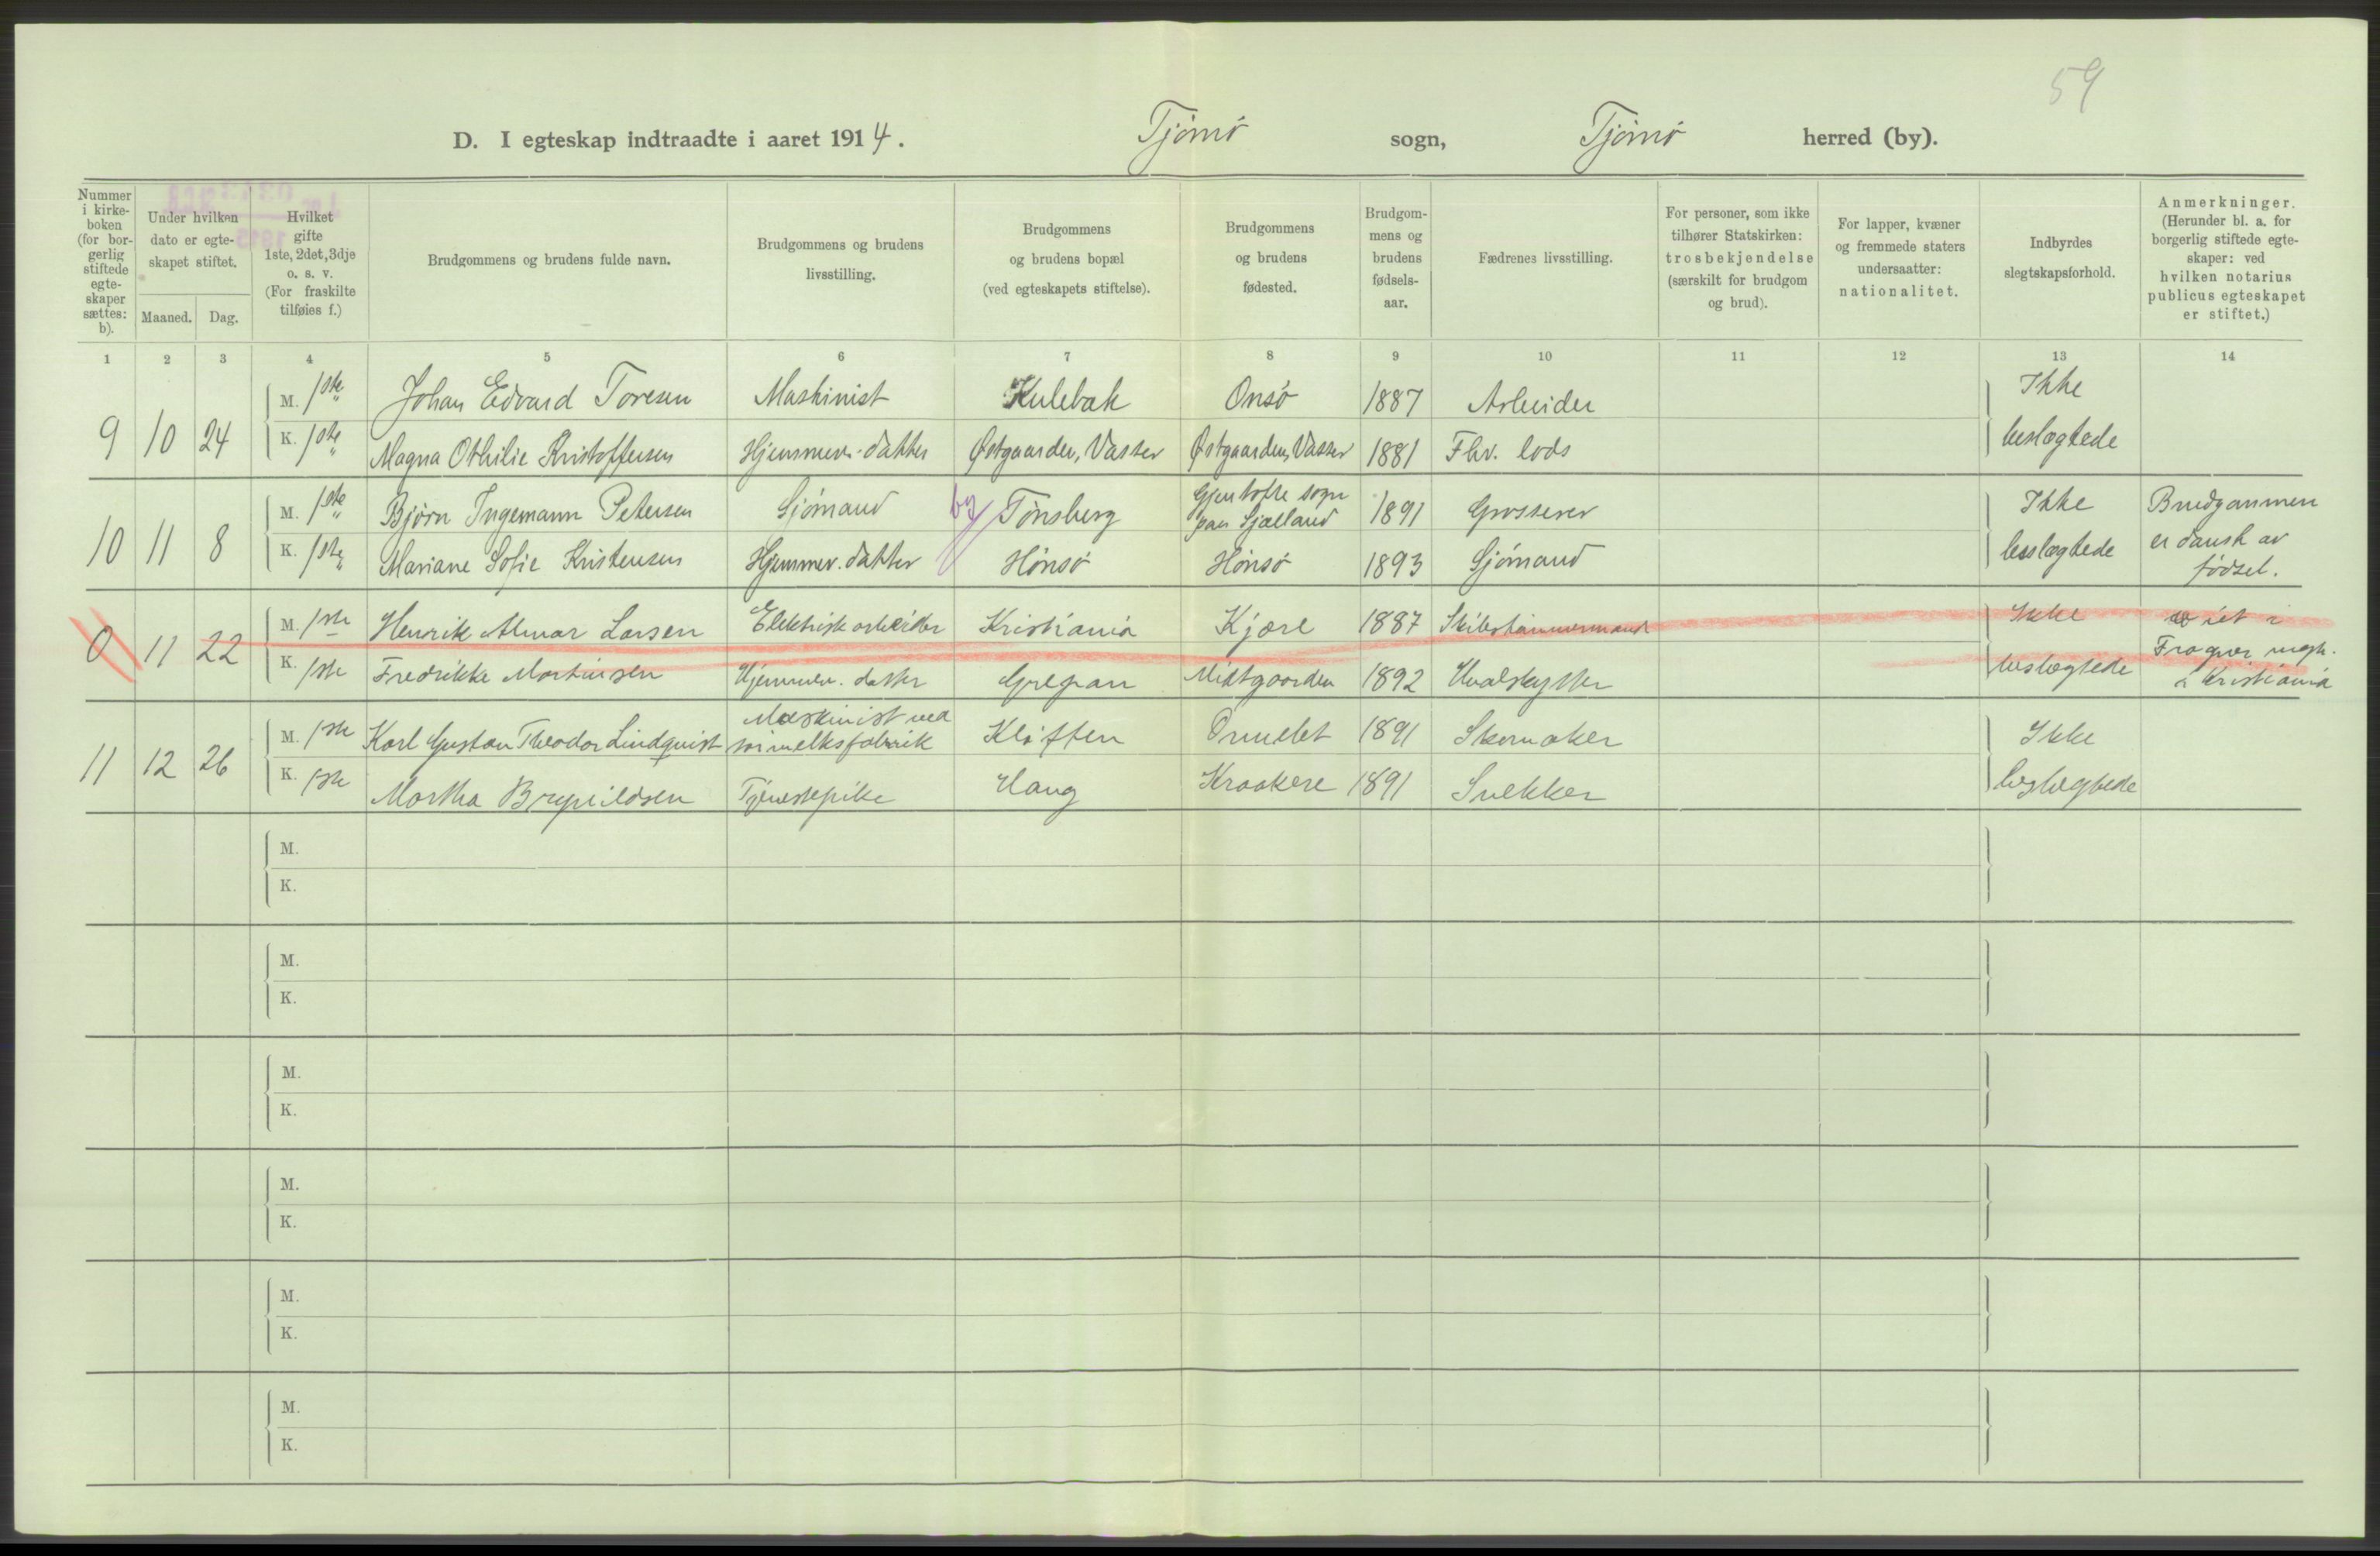 59
D. I egteskap indtraadte i aaret 1914. Tjømø sogn, Tjømø herred (by).
Nummer i kirke-boken (for bor-gerlig stiftede egte-skaper sættes: b).
Under hvilken dato er egte-skapet stiftet.
Maaned. Dag.
Hvilket gifte 1ste, 2det, 3dje o. s. v. (For fraskilte tilføies f.)
Brudgommens og brudens fulde navn.
Brudgommens og brudens livsstilling.
Brudgommens og brudens bopæl (ved egteskapets stiftelse).
Brudgommens og brudens fødested.
Brudgom-mens og brudens fødsels-aar.
Fædrenes livsstilling.
For personer, som ikke tilhører Statskirken: trosbekjendelse (særskilt for brudgom og brud).
For lapper, kvæner og fremmede staters undersaatter: nationalitet.
Indbyrdes slegtskapsforhold.
Anmerkninger. (Herunder bl. a. for borgerlig stiftede egte-skaper: ved hvilken notarius publicus egteskapet er stiftet.)
1 2 3 4 5 6 7 8 9 10 11 12 13 14
M. 1ste Johan Edvard Toresen Maskinist Kulebak Onsø 1887 Arbeider Ikke
9 10 24 K. 1ste Magna Othilie Kristoffersen Hjemmev. datter Østgaarden, Vasser Østgaarden, Vasser 1881 Fhv. lods beslægtede
M. 1ste Bjørn Ingemann Petersen Sjømand by Tønsberg Gjentofte sogn paa Sjælland 1891 Grosserer Ikke Brudgommen
10 11 8 K. 1ste Mariane Sofie Kristensen Hjemmev. datter Hønsø Hønsø 1893 Sjømand beslægtede er dansk av fødsel.
M. 1ste Henrik Almar Larsen Elektrisk arbeider Kristiania Kjære 1887 Skibstømmermand Ikke viet i
0 11 22 K. 1ste Fredrikke Martinsen Hjemmev. datter Grepan Midtgaarden 1892 Hvalskytter beslægtede Frogner megh. i Kristiania
M. 1ste Karl Gustav Theodor Lindquist Maskinist ved tørmelksfabrik Kløften Ormelet 1891 Skomaker Ikke
11 12 26 K. 1ste Martha Brynildsen Tjenestepike Haug Kraakere 1891 Snekker beslægtede
M.
K.
M.
K.
M.
K.
M.
K.
M.
K.
M.
K.